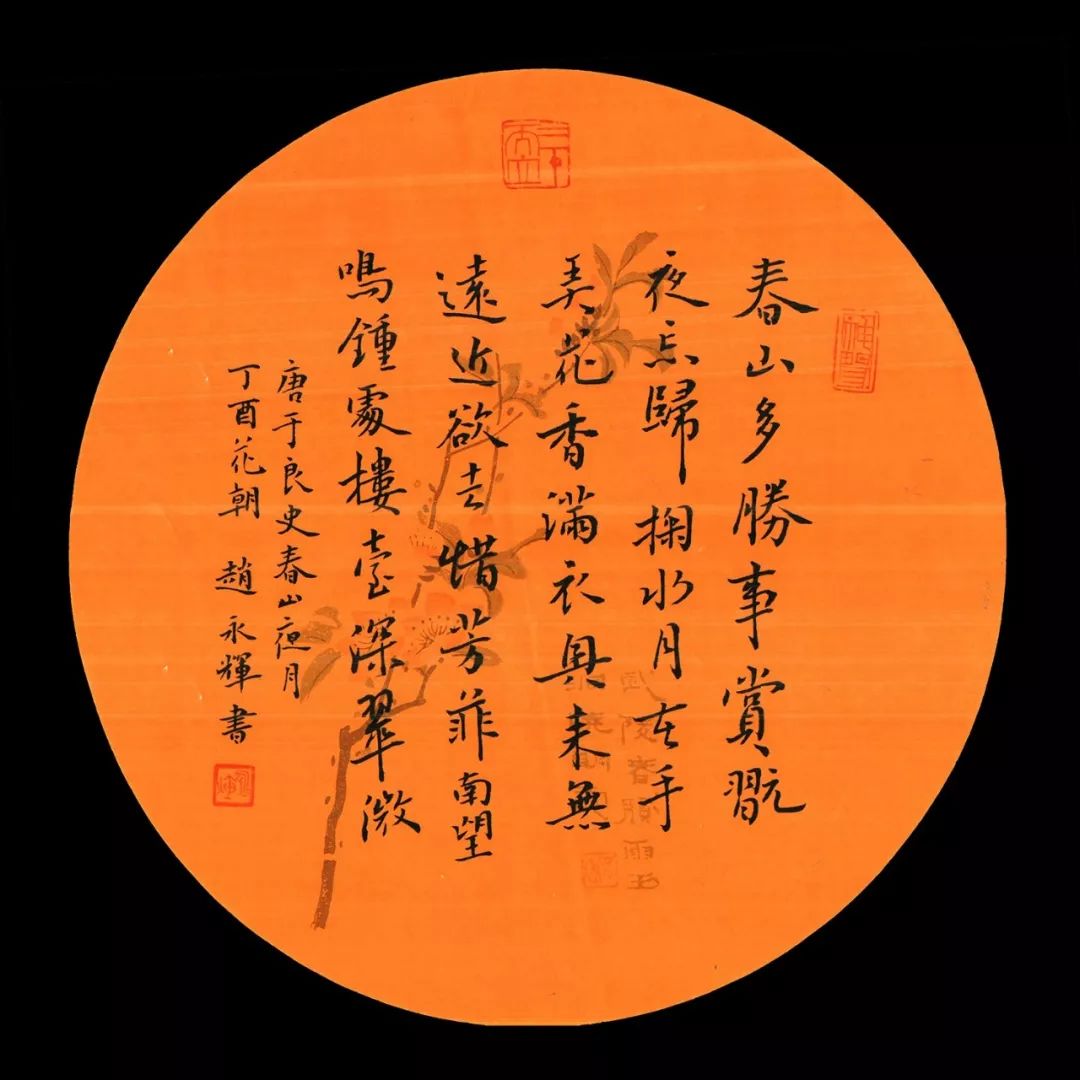 春山多勝事賞翫
夜忘歸掬水月在手
弄花香滿衣興来無
遠近欲去惜芳菲南望
鳴鍾處樓臺深翠微
唐于良史春山夜月
丁酉花朝 趙永輝書